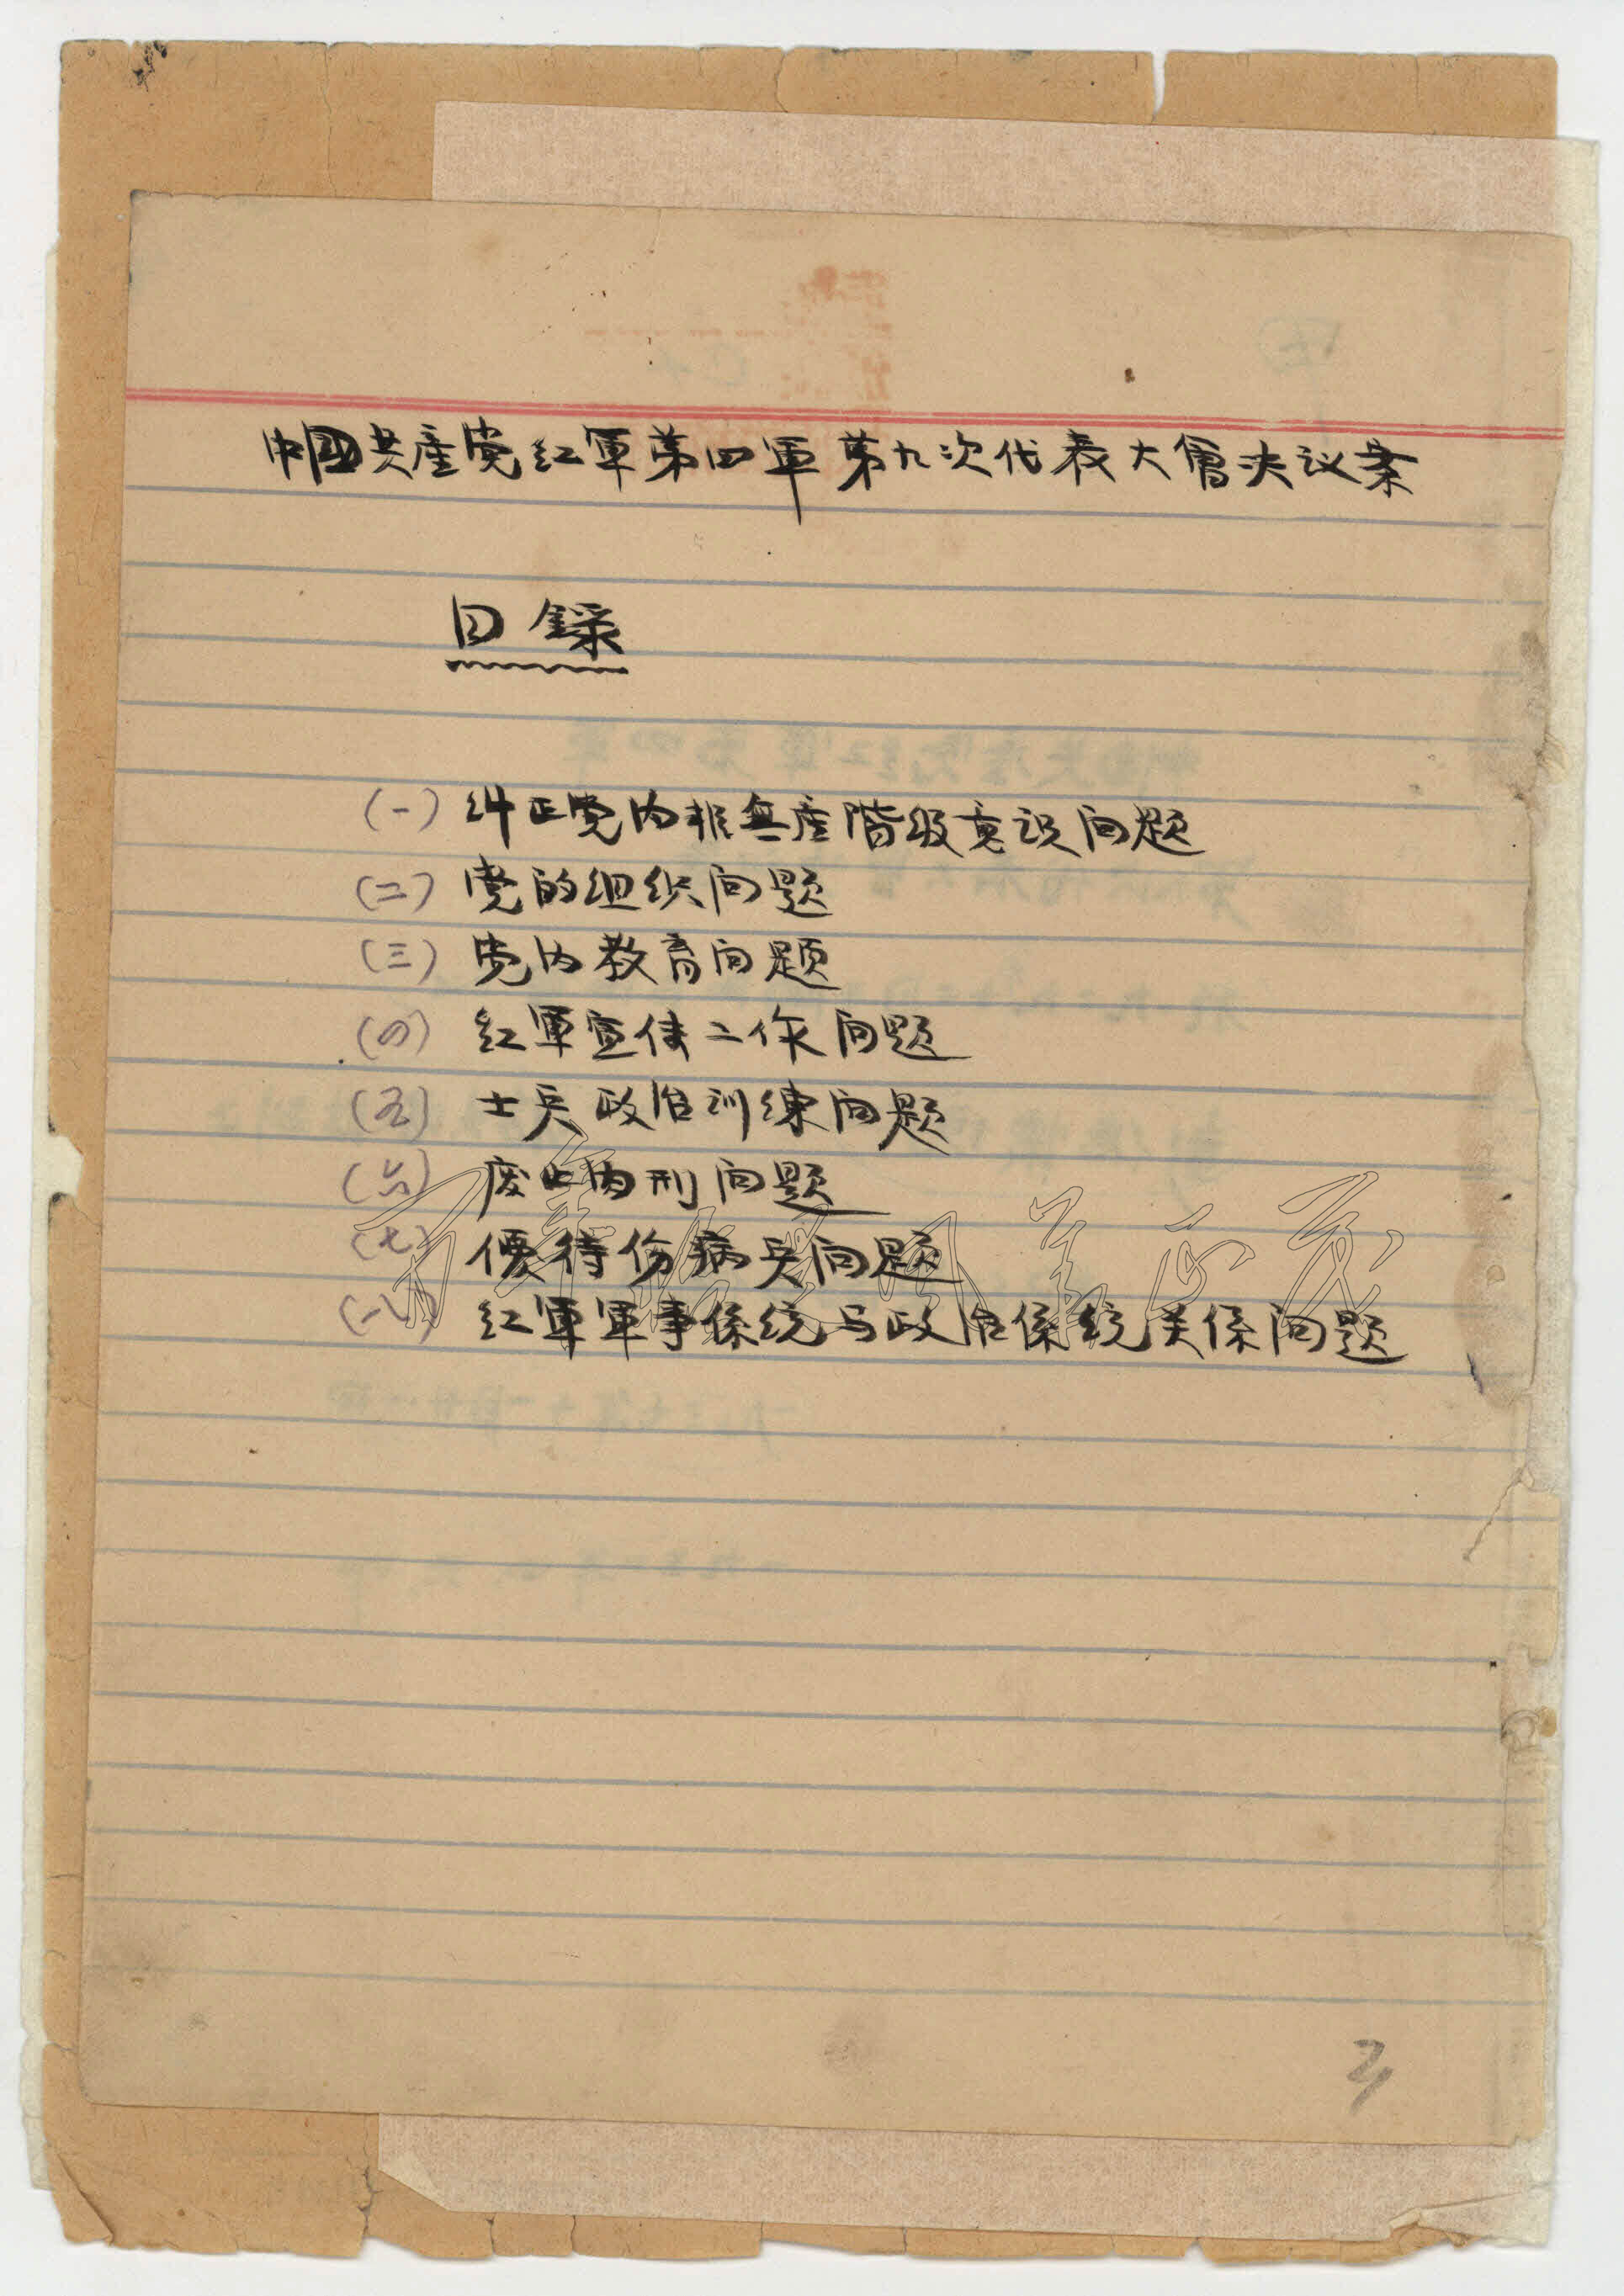 中國共產党红軍第四軍第九次代表大會决议案
目録
(一) 纠正党内非無産階级意识问题
(二) 党的组织问题
(三) 党内教育问题
(四) 红軍宣传工作问题
(五) 士兵政治训練问题
(六) 废止肉刑问题
(七) 優待伤病兵问题
(八) 红軍軍事係统与政治係統关係问题